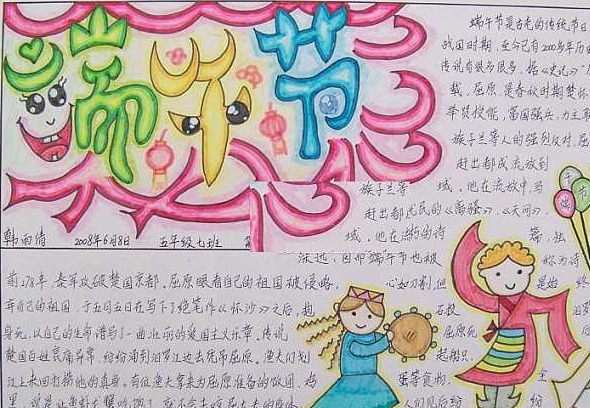 端午节
韩雨倩 2008年6月8日 五年级七班
端午节是古老的传统节日
战国时期，至今已有2000多年历史
传说有很多很多，据《史记》
载，屈原，是春秋时期楚怀
举贤授能，富国强兵，力主
族子兰等人的强烈反对，屈原
赶出都城流放到
族子兰等 域，他在流放中写
赶出都 忧民的《离骚》、《天问》、
域，他在 的诗 篇，独
深远，因而端午节也被 称为诗
前278年，秦军攻破楚国京都，屈原眼看自己的祖国被侵略，心如刀割，但 是始 终
弃自己的祖国，于五月五日在写下了绝笔作《怀沙》之后，抱 石投
身死，以自己的生命谱写了一曲壮丽的爱国主义乐章，传说 屈原死
楚国百姓哀痛异常，纷纷涌到汨罗江边去凭吊屈原，渔夫们划 起船只，
江上来回打捞他的真身，有位渔夫拿来为屈原准备的饭团、鸡 蛋等食物，
人们见后纷 纷
午
节